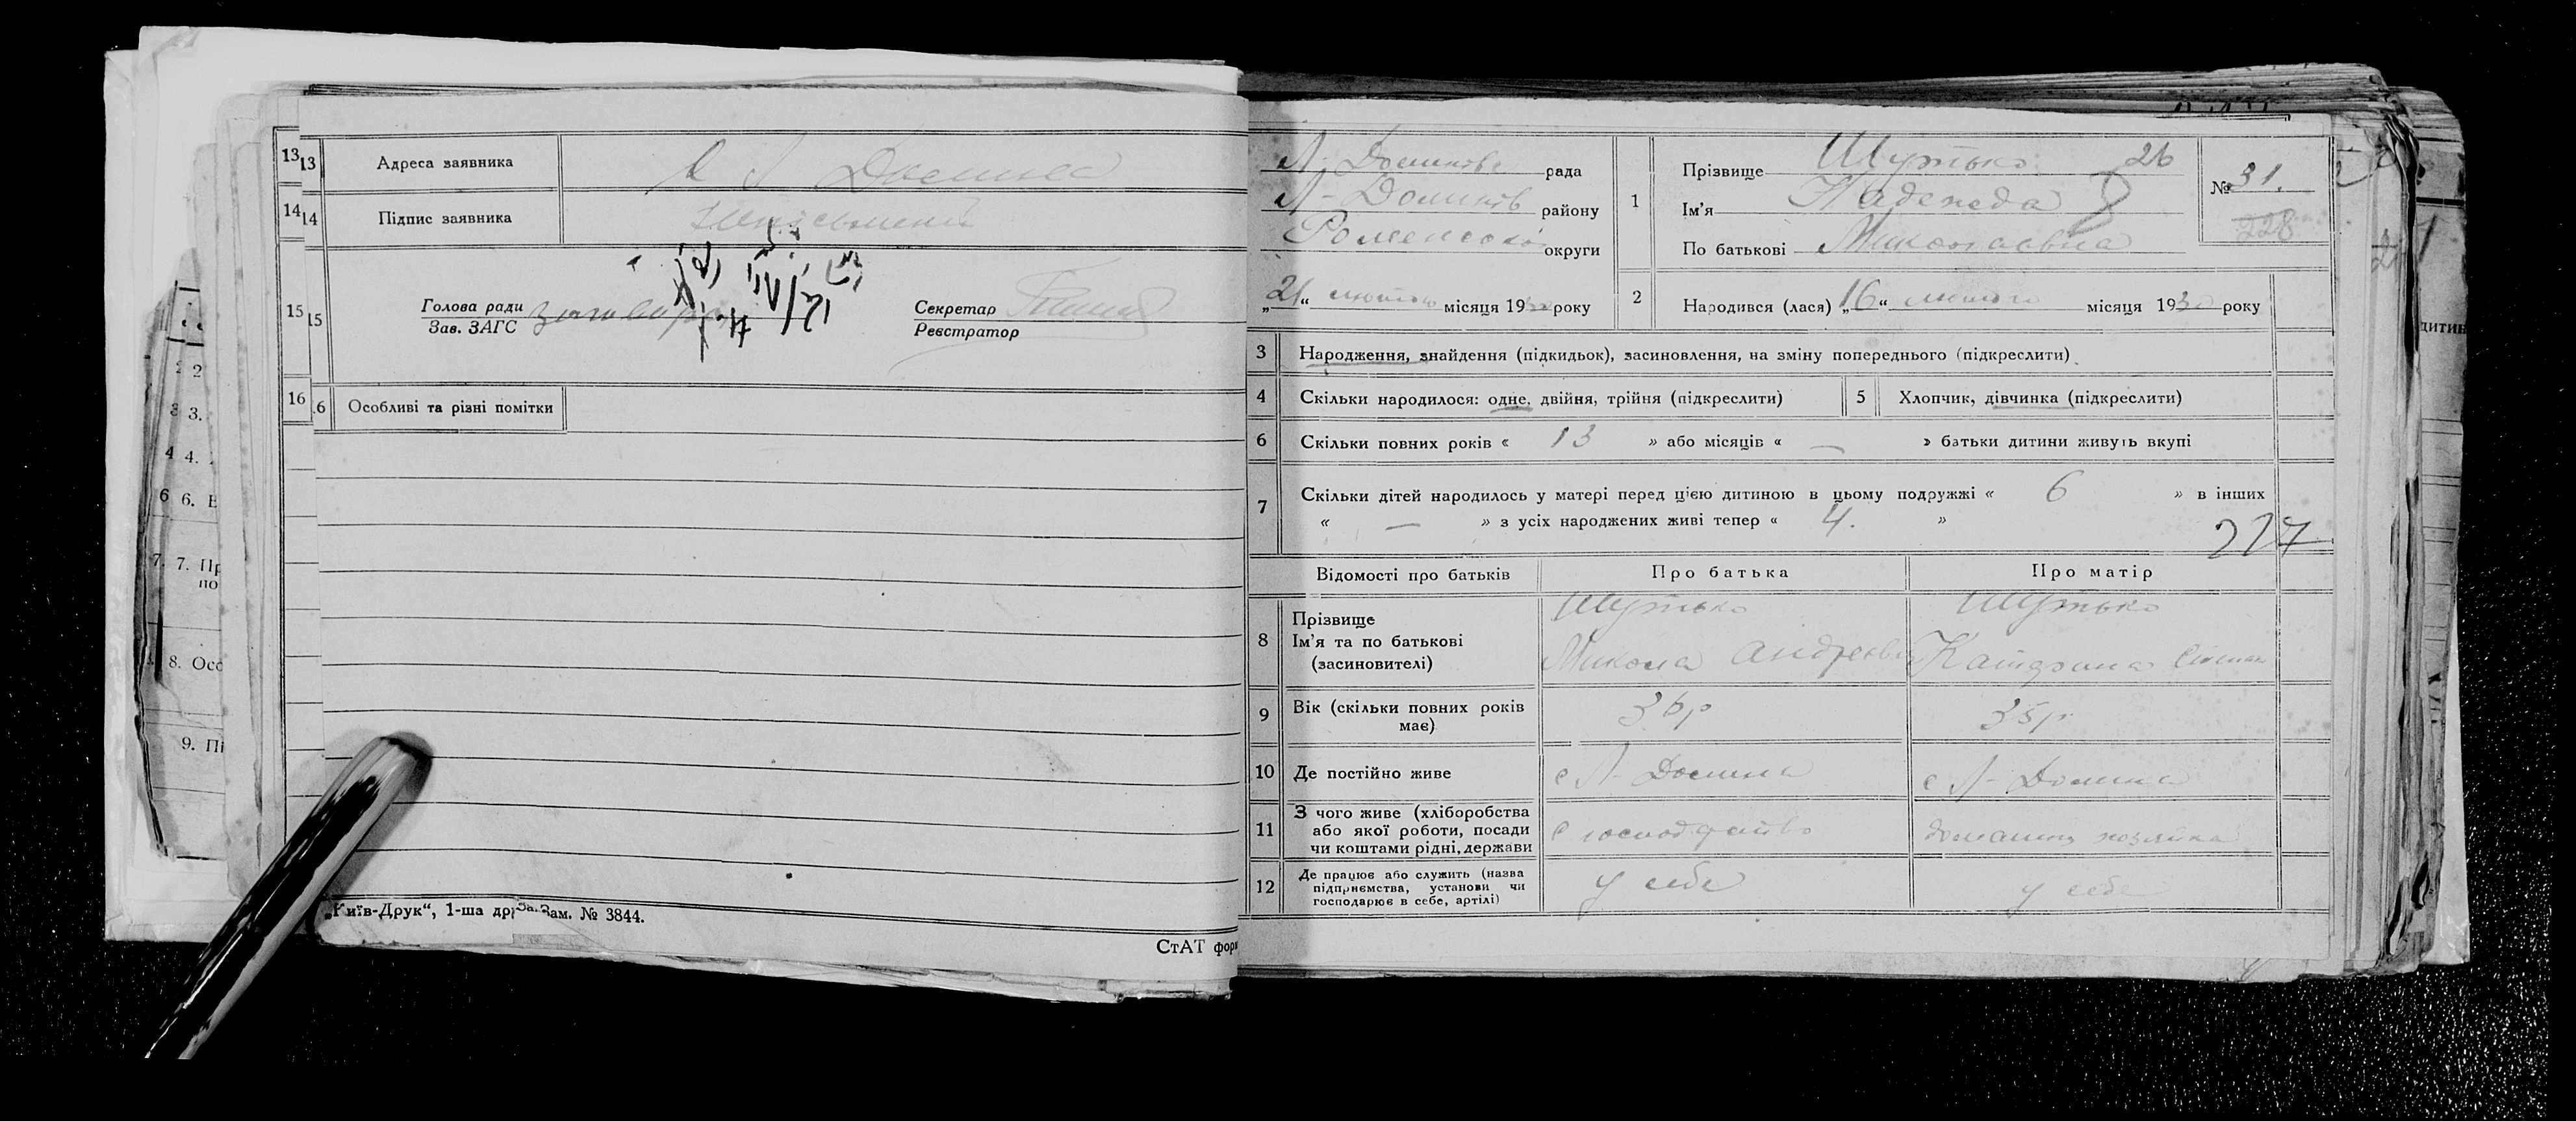 13 13 Адреса заявника с Л Долина
14 14 Підпис заявника
15 15 Голова ради
Зав. ЗАГС
Секретар
Реєстратор
16 6 Особливі та різні помітки
2 2
3 3.
4 4.
6 6. Е
7. 7. Пр
по
8. Осс
9. Пі
„Київ-Друк“, 1-ша др Зам. № 3844.
СтАТ фор
Л-Долинсв рада
Л-Долинсв району
Роменської округи
„21“ лютого місяця 1930 року
1 Прізвище Шутько 26
Ім’я Надежда
По батькові Миколаєвна
№ 31.
228
2 Народився (лася) „16“ лютого місяця 1930 року
3 Народження, знайдення (підкидьок), засиновлення, на зміну попереднього (підкреслити)
4 Скільки народилося: одне, двійня, трійня (підкреслити) 5 Хлопчик, дівчинка (підкреслити)
6 Скільки повних років « 13 » або місяців « — » батьки дитини живуть вкупі
7 Скільки дітей народилось у матері перед цією дитиною в цьому подружжі « 6 » в інших
« — » з усіх народжених живі тепер « 4. »
227
Відомості про батьків Про батька Про матір
8 Прізвище Шутько Шутько
Ім’я та по батькові Микола Андреєв Катерина Степан
(засиновителі)
9 Вік (скільки повних років має) 36р 35р
10 Де постійно живе с Л-Долина с Л-Долина
11 З чого живе (хліборобства
або якої роботи, посади с господарство домашня хозяйка
чи коштами рідні, держави
12 Де працює або служить (назва у себе у себе
підприємства, установи чи
господарює в себе, артілі)
дитин